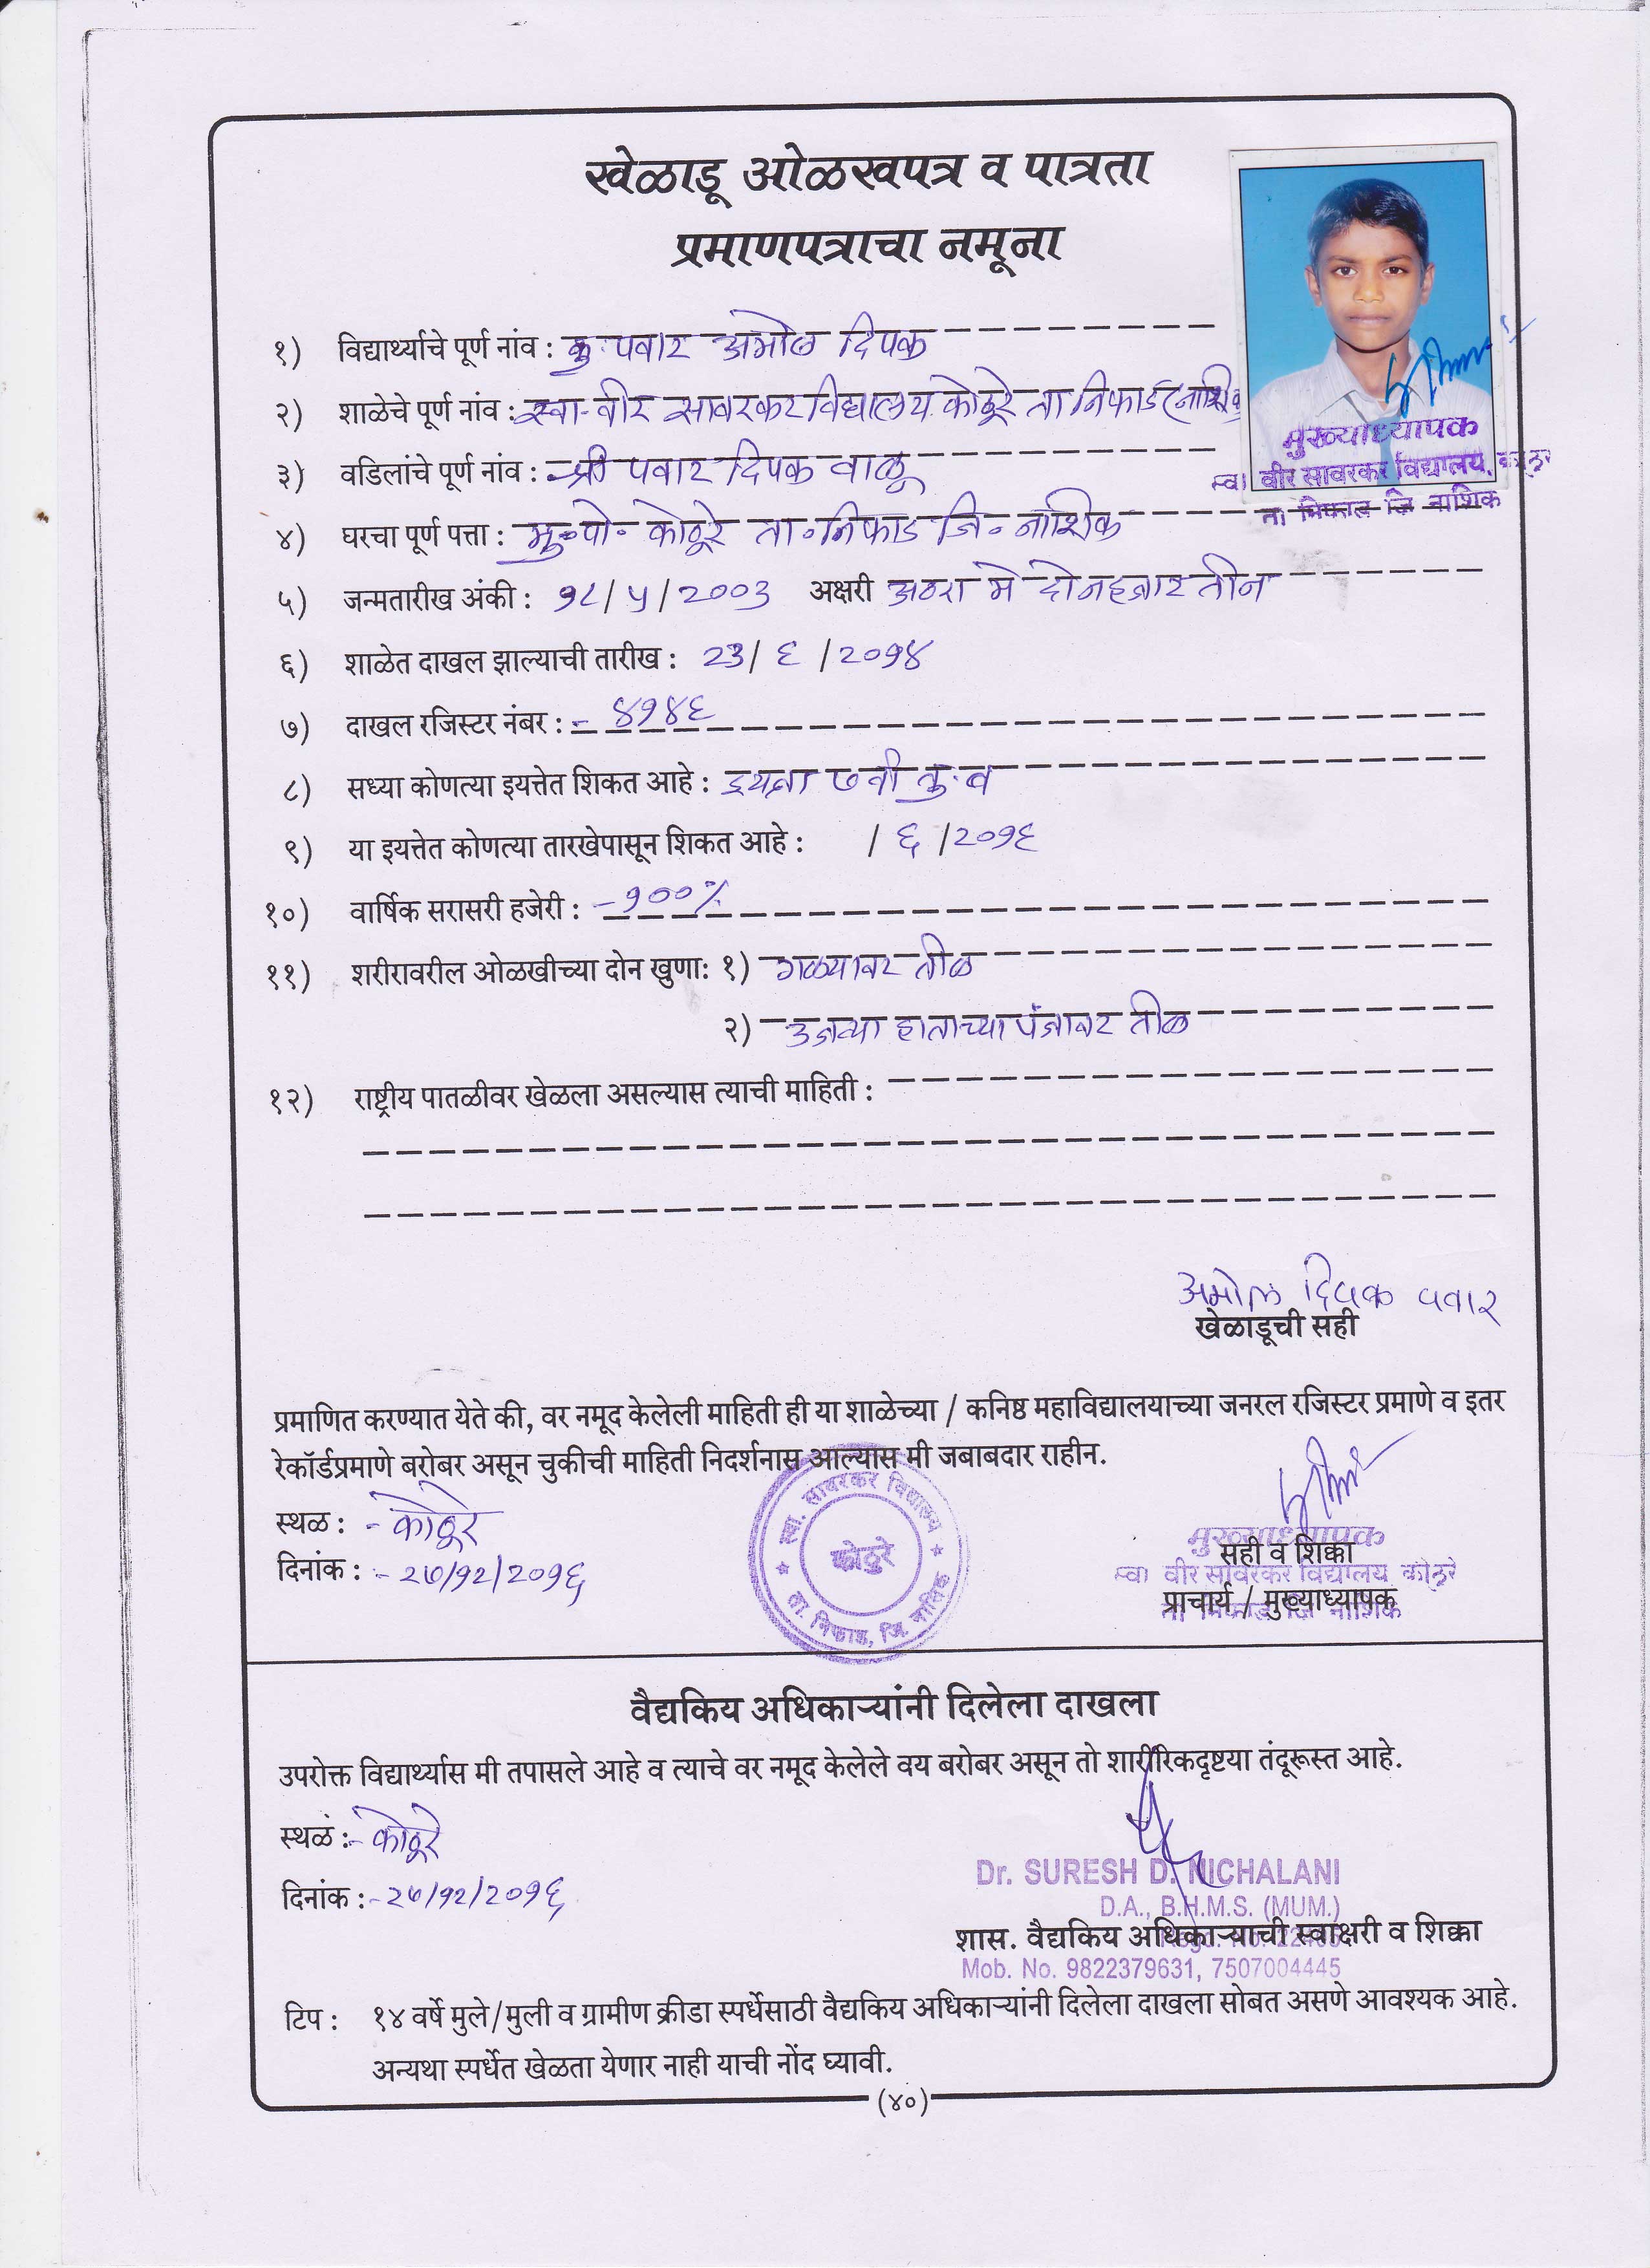 खेळाडू ओळखपत्र व पात्रता
प्रमाणपत्राचा नमूना
१) विद्यार्थ्याचे पूर्ण नांव : कु. पवार अमोल दिपक
२) शाळेचे पूर्ण नांव : स्वा. वीर सावरकर विद्यालय कोठुरे ता निफाड (नाशिक
३) वडिलांचे पूर्ण नांव : श्री पवार दिपक वाळू
४) घरचा पूर्ण पत्ता : मु.पो. कोठुरे ता. निफाड जि. नाशिक
५) जन्मतारीख अंकी : १८/५/२००३ अक्षरी अठरा मे दोनहजार तीन
६) शाळेत दाखल झाल्याची तारीख : २३/६/२०१४
७) दाखल रजिस्टर नंबर : - ४१४६
८) सध्या कोणत्या इयत्तेत शिकत आहे : इयत्ता ७ वी तु. ब
९) या इयत्तेत कोणत्या तारखेपासून शिकत आहे : /६/२०१६
१०) वार्षिक सरासरी हजेरी : - १००%
११) शरीरावरील ओळखीच्या दोन खुणा: १) गळ्यावर तीळ
२) उजव्या हाताच्या पंजावर तीळ
१२) राष्ट्रीय पातळीवर खेळला असल्यास त्याची माहिती :
मुख्याध्यापक
स्वा वीर सावरकर विद्यालय, कोठुरे
ता निफाड जि नाशिक
अमोल दिपक पवार
खेळाडूची सही
प्रमाणित करण्यात येते की, वर नमूद केलेली माहिती ही या शाळेच्या / कनिष्ठ महाविद्यालयाच्या जनरल रजिस्टर प्रमाणे व इतर
रेकॉर्डप्रमाणे बरोबर असून चुकीची माहिती निदर्शनास आल्यास मी जबाबदार राहीन.
स्थळ : - कोठुरे
दिनांक : - २७/१२/२०१६
स्वा. सावरकर विद्यालय
कोठुरे
ता. निफाड, जि. नासिक
मुख्याध्यापक
सही व शिक्का
स्वा वीर सावरकर विद्यालय, कोठुरे
प्राचार्य / मुख्याध्यापक
ता निफाड जि नाशिक
वैद्यकिय अधिकाऱ्यांनी दिलेला दाखला
उपरोक्त विद्यार्थ्यास मी तपासले आहे व त्याचे वर नमूद केलेले वय बरोबर असून तो शारीरिकदृष्टया तंदूरूस्त आहे.
स्थळं :- कोठुरे
दिनांक :- २७/१२/२०१६
Dr. SURESH D. NICHALANI
D.A., B.H.M.S. (MUM.)
शास. वैद्यकिय अधिकाऱ्याची स्वाक्षरी व शिक्का
Mob. No. 9822379631, 7507004445
टिप : १४ वर्षे मुले/मुली व ग्रामीण क्रीडा स्पर्धेसाठी वैद्यकिय अधिकाऱ्यांनी दिलेला दाखला सोबत असणे आवश्यक आहे.
अन्यथा स्पर्धेत खेळता येणार नाही याची नोंद घ्यावी.
(४०)